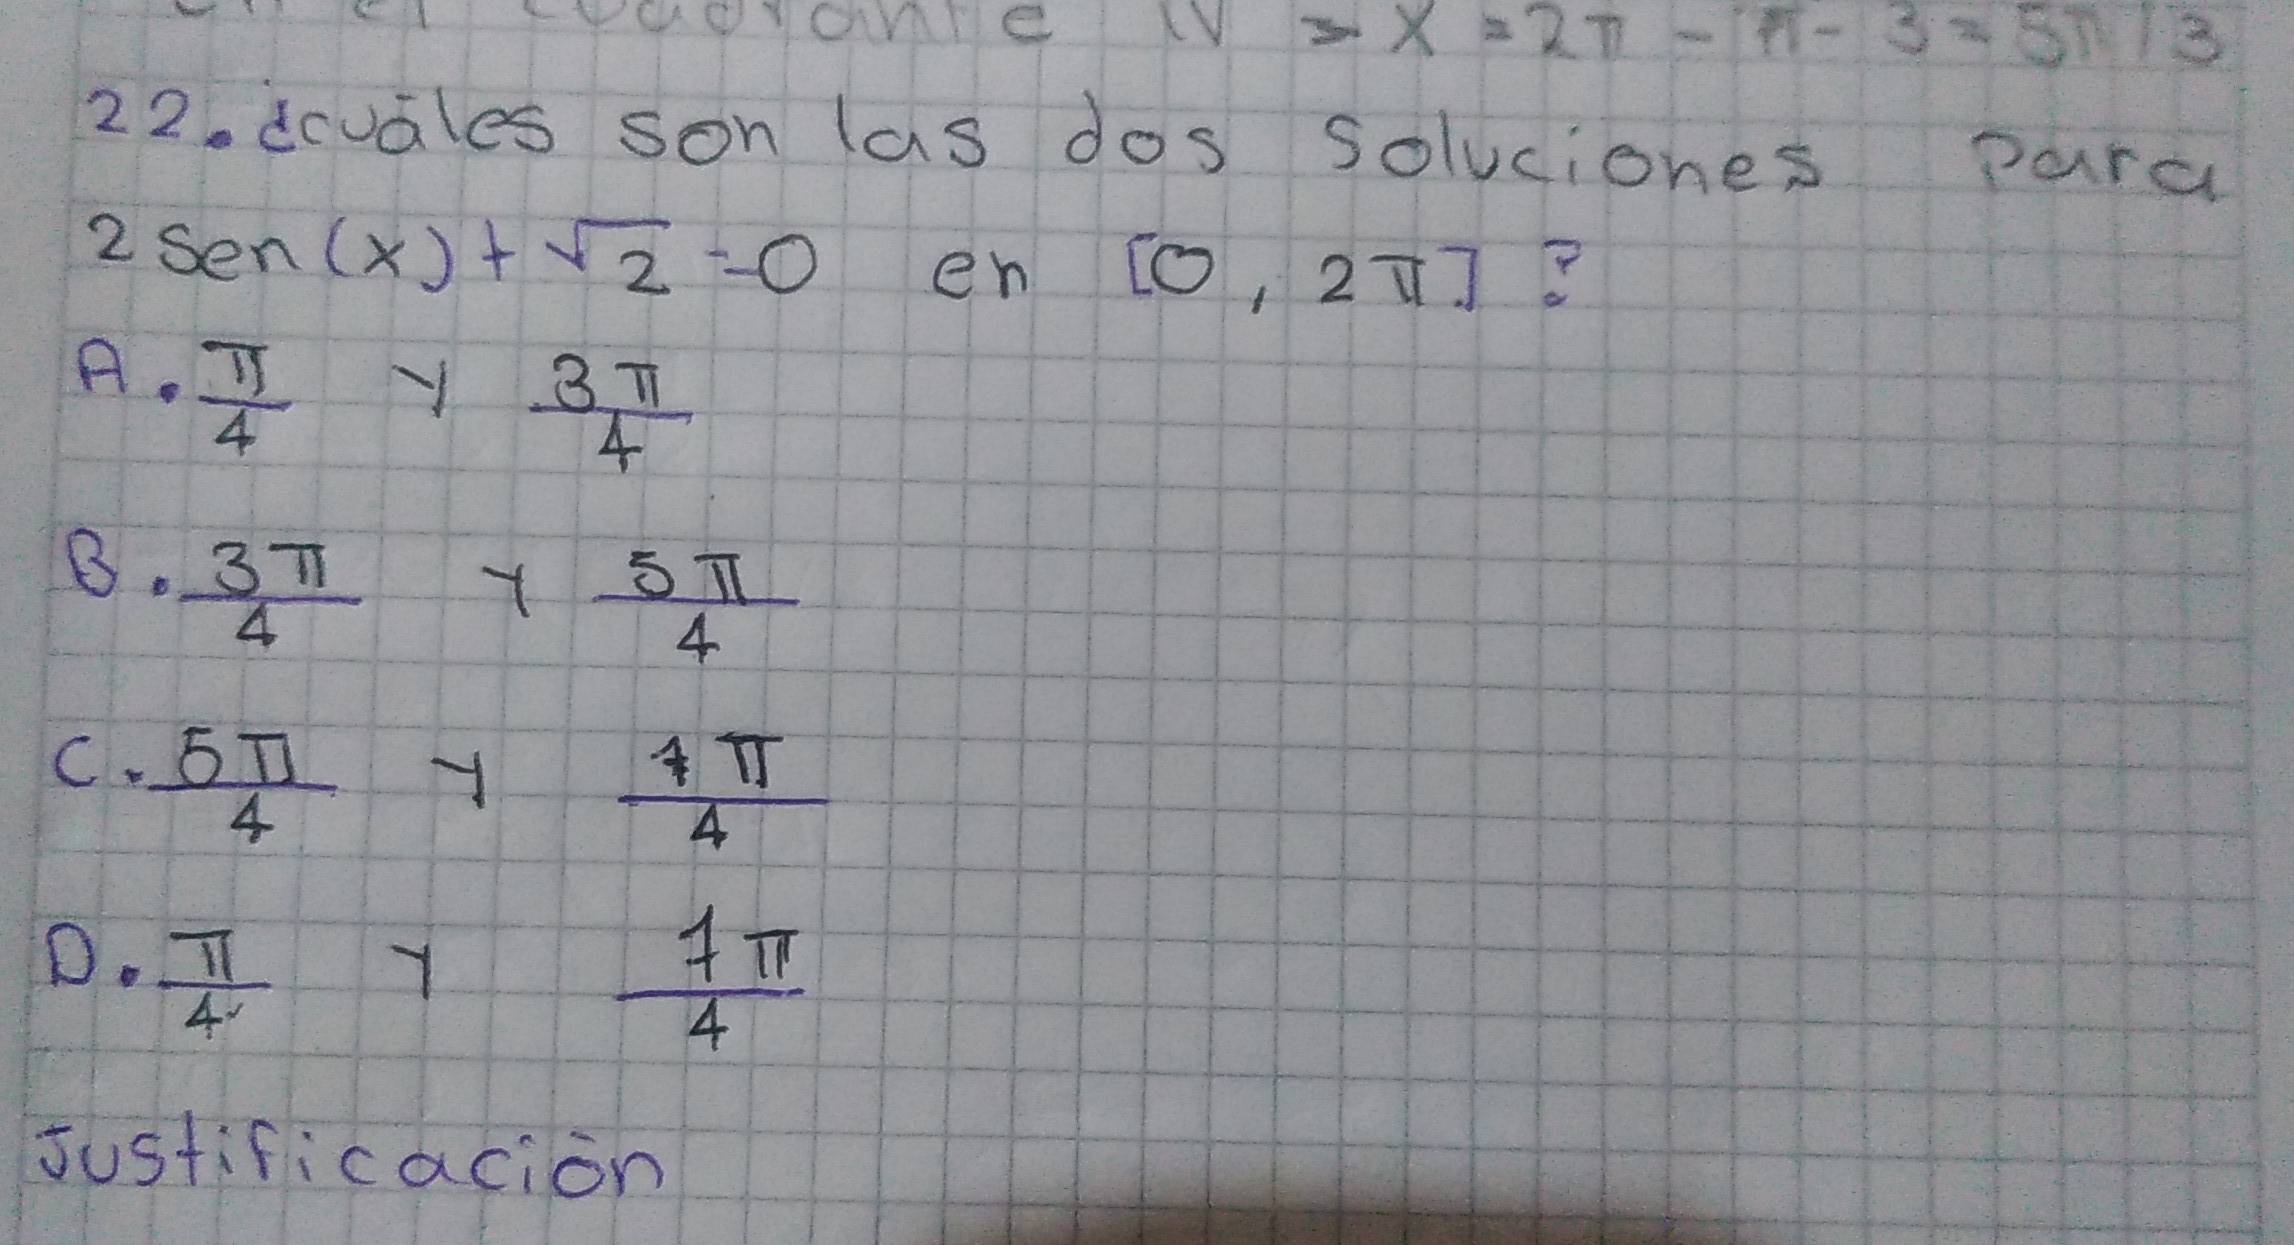 cuadrante IV > x = 2π - π - 3 = 5π / 3
22. ¿cuáles son las dos soluciones para
2 sen(x) + √2 = 0 en [0, 2π]?
A. π/4 y 3π/4
B. 3π/4 y 5π/4
C. 5π/4 y 7π/4
D. π/4 y 7π/4
Justificación